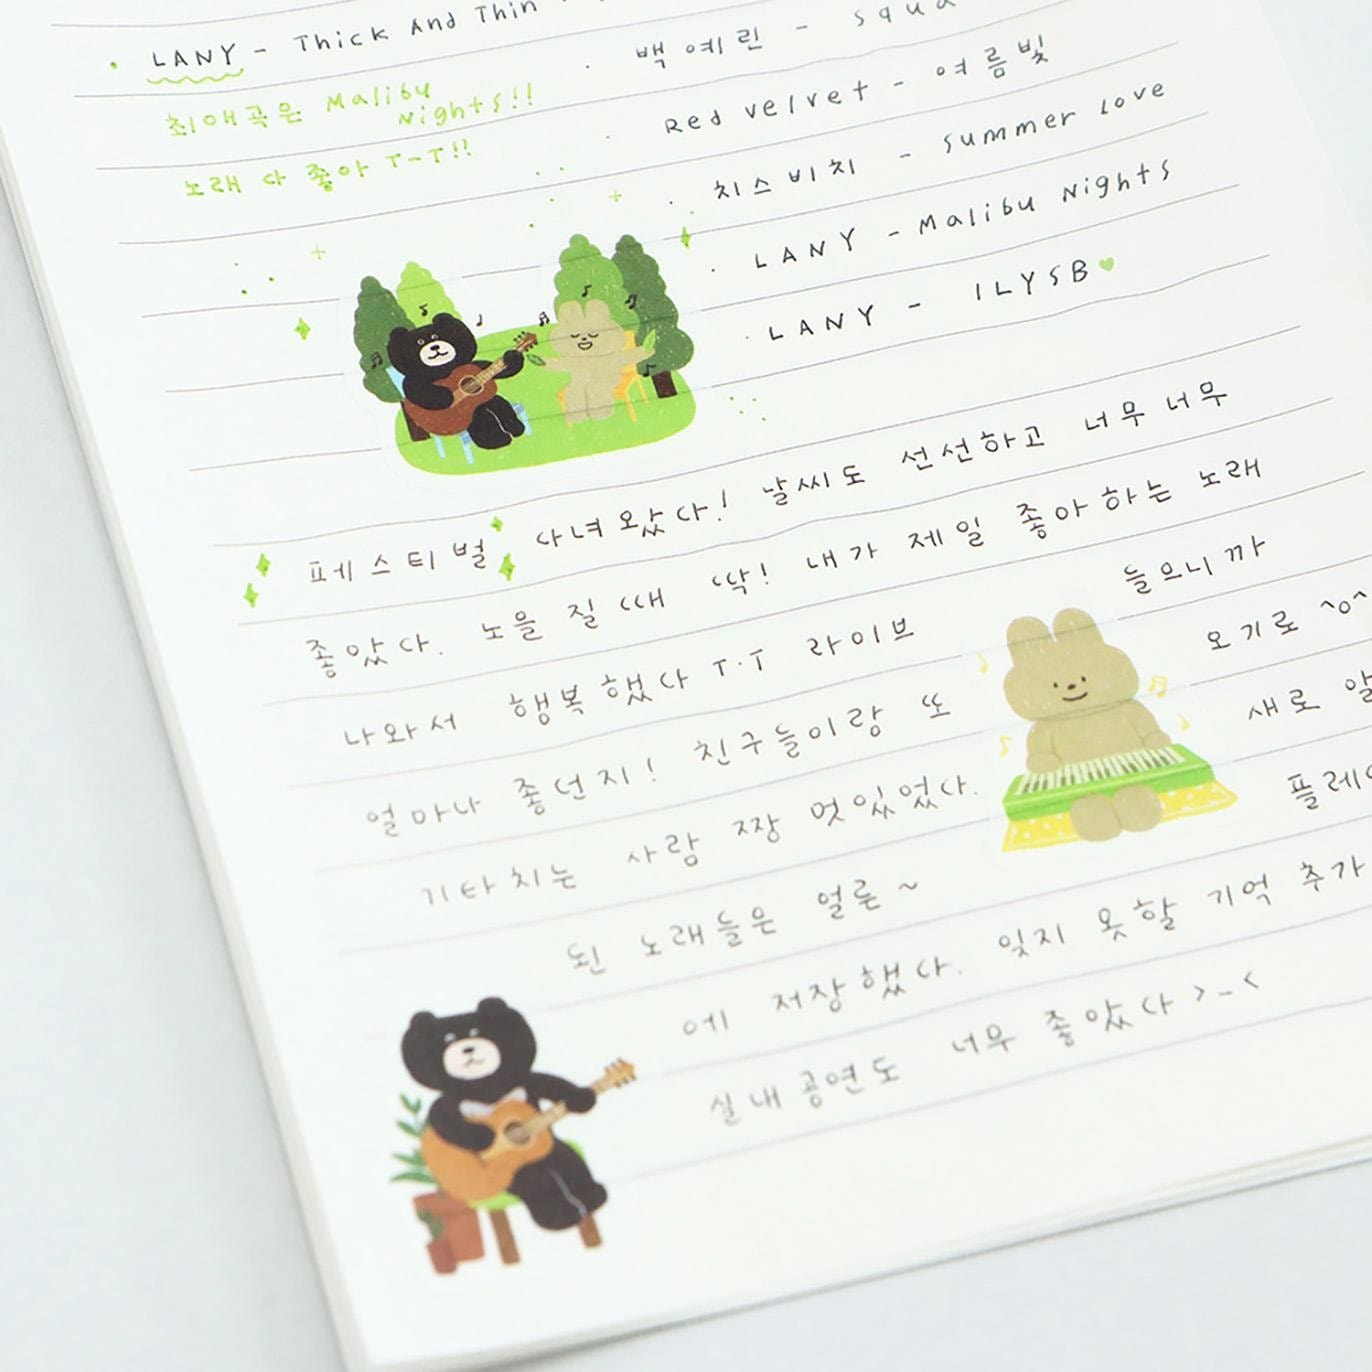 · LANY - Thick And Thin
최애곡은 Malibu
Nights!!
노래 다 좋아 T-T!!
· 백예린 -
· Red velvet - 여름빛
· 치즈비치 - Summer Love
· LANY - Malibu Nights
· LANY - ILYSB
페스티벌 다녀왔다! 날씨도 선선하고 너무너무
좋았다. 노을 질 때 딱! 내가 제일 좋아하는 노래
나와서 행복했다 T.T 라이브 들으니까
얼마나 좋던지! 친구들이랑 또 오기로 ^o^
기타치는 사람 짱 멋있었다. 새로
된 노래들은 얼른~
에 저장했다. 잊지 못할 기억 추가
실내공연도 너무 좋았다 >_<